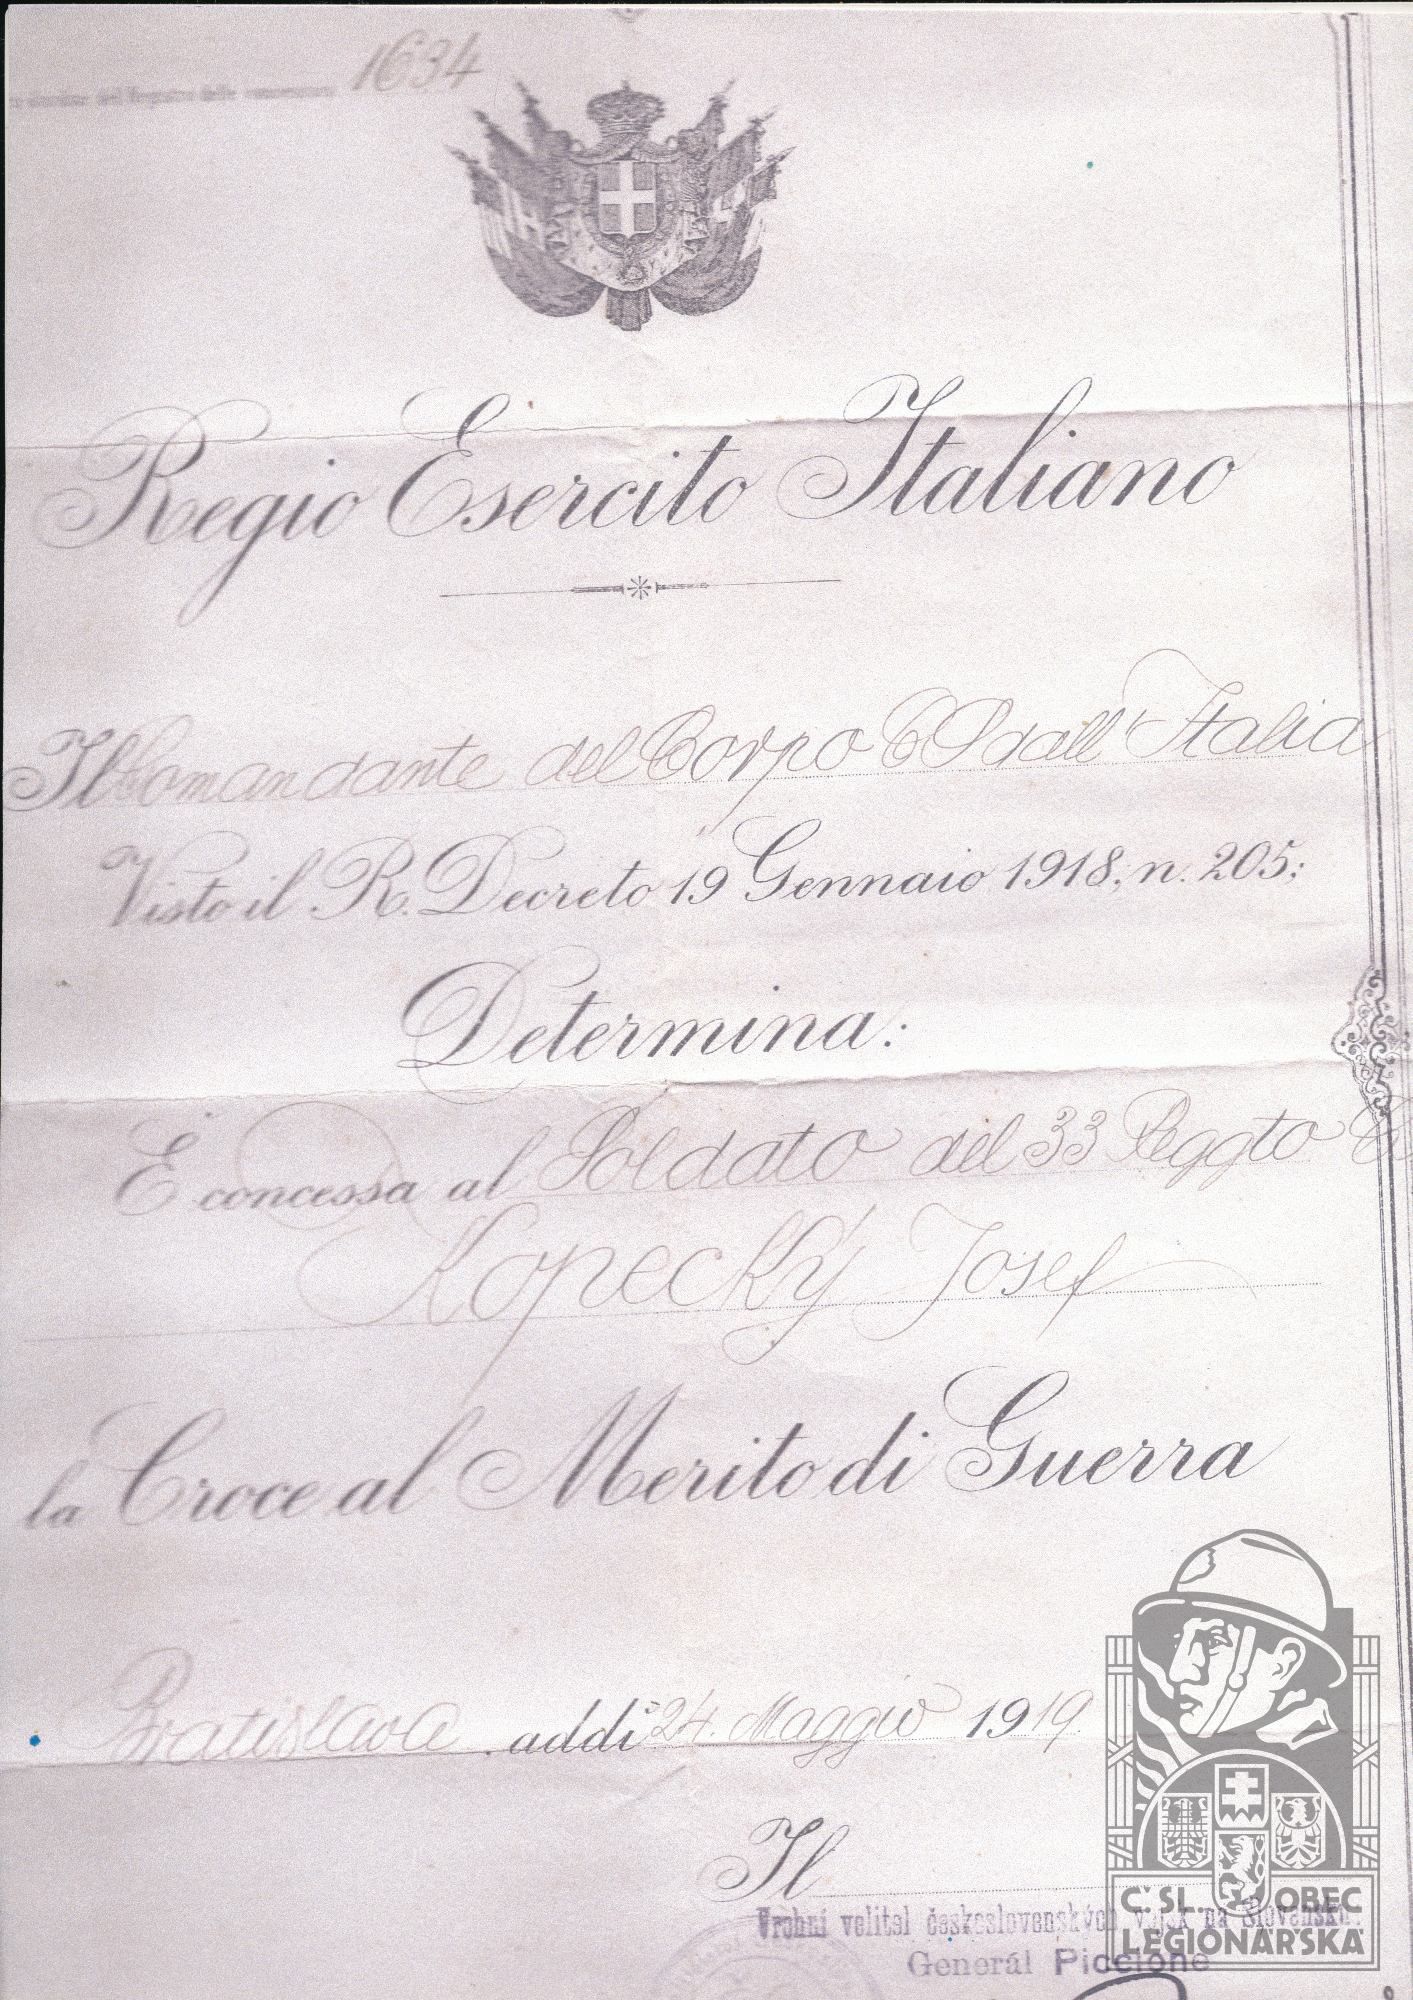 1634
Regio Esercito Italiano
Il Comandante del Corpo CS dall' Italia
Visto il R. Decreto 19 Gennaio 1918, n. 205;
Determina:
È concessa al Soldato del 33 Reggto
Kopecký Josef
la Croce al Merito di Guerra
Bratislava addì 24 Maggio 1919
Il
Vrchní velitel československých vojsk na Slovensku.
Generál Piccione
Č.SL. OBEC
LEGIONÁŘSKÁ